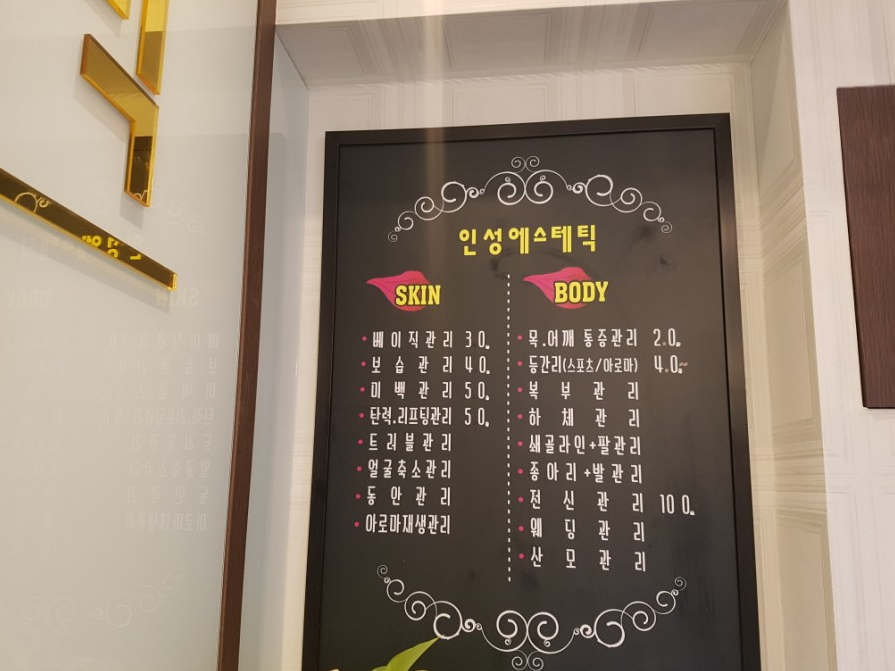 인성에스테틱
SKIN
• 베이직관리 30.
• 보습관리 40.
• 미백관리 50.
• 탄력.리프팅관리 50.
• 트러블관리
• 얼굴축소관리
• 동안관리
• 아로마재생관리
BODY
• 목.어깨 통증관리 2.0.
• 등간리(스포츠/아로마) 4.0.
• 복부관리
• 하체관리
• 쇄골라인+팔관리
• 종아리+발관리
• 전신관리 100.
• 웨딩관리
• 산모관리